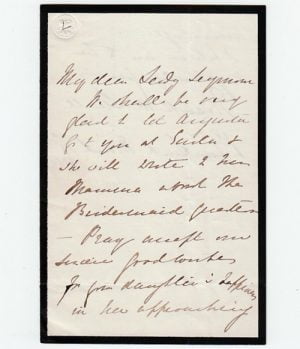 My dear Lady Seymour
We shall be very
glad to let Augusta
go to you at & 
she will write to her
Mamma about the
Bridesmaid question
— Pray accept our
sincere good wishes
for your daughter's happiness
in her approaching